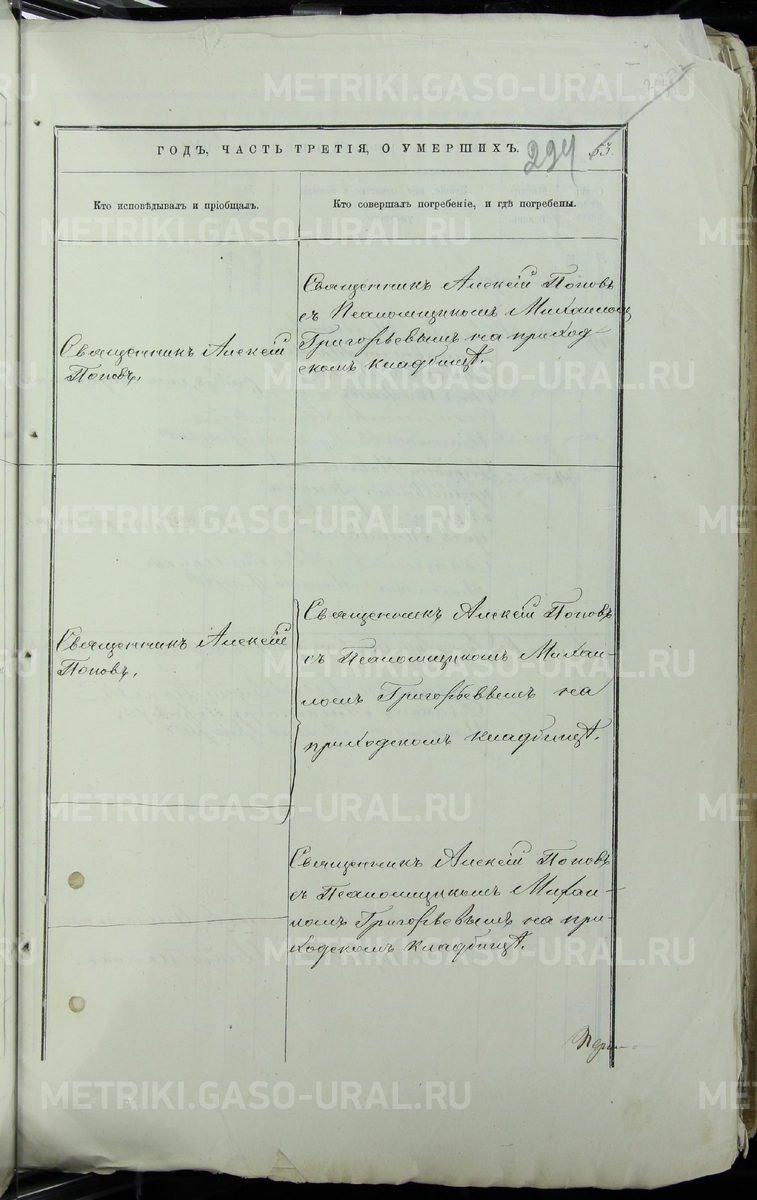 ГОДЪ, ЧАСТЬ ТРЕТІЯ, О УМЕРШИХЪ.
294
63.
Кто исповѣдывалъ и пріобщалъ.
Кто совершалъ погребеніе, и гдѣ погребены.
Священникъ Алексій
Поповъ,
Священникъ Алексій Поповъ
съ Псаломщикомъ Михаиломъ
Григорьевымъ на приход-
скомъ кладбищѣ.
Священникъ Алексій
Поповъ,
Священникъ Алексій Поповъ
съ Псаломщикомъ Михаи-
ломъ Григорьевымъ на
приходскомъ кладбищѣ.
Священникъ Алексій Поповъ
съ Псаломщикомъ Михаи-
ломъ Григорьевымъ на при-
ходскомъ кладбищѣ.
METRIKI.GASO-URAL.RU